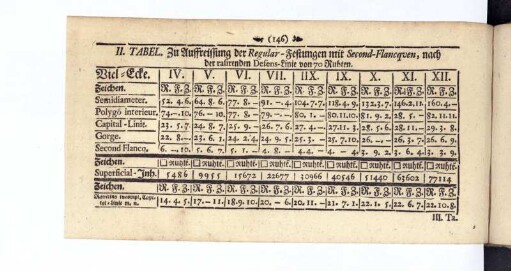 (146)
II. TABEL. Zu Auffreissung der Regular-Festungen mit Second-Flancqven, nach
der rasirenden Defens-Linie von 70 Ruhten.
Viel-Ecke. IV. V. VI. VII. IIX. IX. X. XI. XII.
Zeichen. R. F. Z. R. F. Z. R. F. Z. R. F. Z. R. F. Z. R. F. Z. R. F. Z. R. F. Z. R. F. Z.
Semidiameter. 52. 4. 6. 64. 8. 6. 77. 8. – 91. –. 4. 104. 7. 7. 118. 4. 9. 132. 3. 7. 146. 2. 11. 160. 4. –
Polygõ interieur. 74 –. 10. 76. – 10. 77. 8. – 79. – – 80. 1. – 80. 11. 10. 81. 9. 2. 28. 5. – 82. 11. 11.
Capital-Linie. 23. 5. 7. 24. 8. 7. 25. 9. – 26. 7. 6. 27. 4. – 27. 11. 3. 28. 5. 6. 28. 11. – 29. 3. 8.
Gorge. 22. 8. – 23. 6. 1. 24. 2. 4. 24. 9. 5. 25. 3. – 25. 7. 10. 26. – – 26. 3. 7. 26. 6. 9.
Second Flancq. 6. –. 10. 5. 6. 7. 5. 1. – 4. 8. – 4. 4. – 4. – 4. 3. 9. 2. 3. 6. 4. 3. 3. 9.
Zeichen. □ Ruhtē. □ Ruhtē. □ Ruhtē. □ Ruhtē. □ Ruhtē. □ Ruhtē. □ Ruhtē. □ Ruhtē. □ Ruhtē.
Superficial-Inh. 5486 9955 15672 22677 30966 40546 51440 63602 77114
Zeichen. R. F. Z. R. F. Z. R. F. Z. R. F. Z. R. F. Z. R. F. Z. R. F. Z. R. F. Z. R. F. Z.
14. 4. 5. 17. – 11. 18. 9. 10. 20. 6. – 20. 11. – 21. 7. 1. 22. 1. 5. 22. 6. 7. 21. 10. 8.
III. Ta.